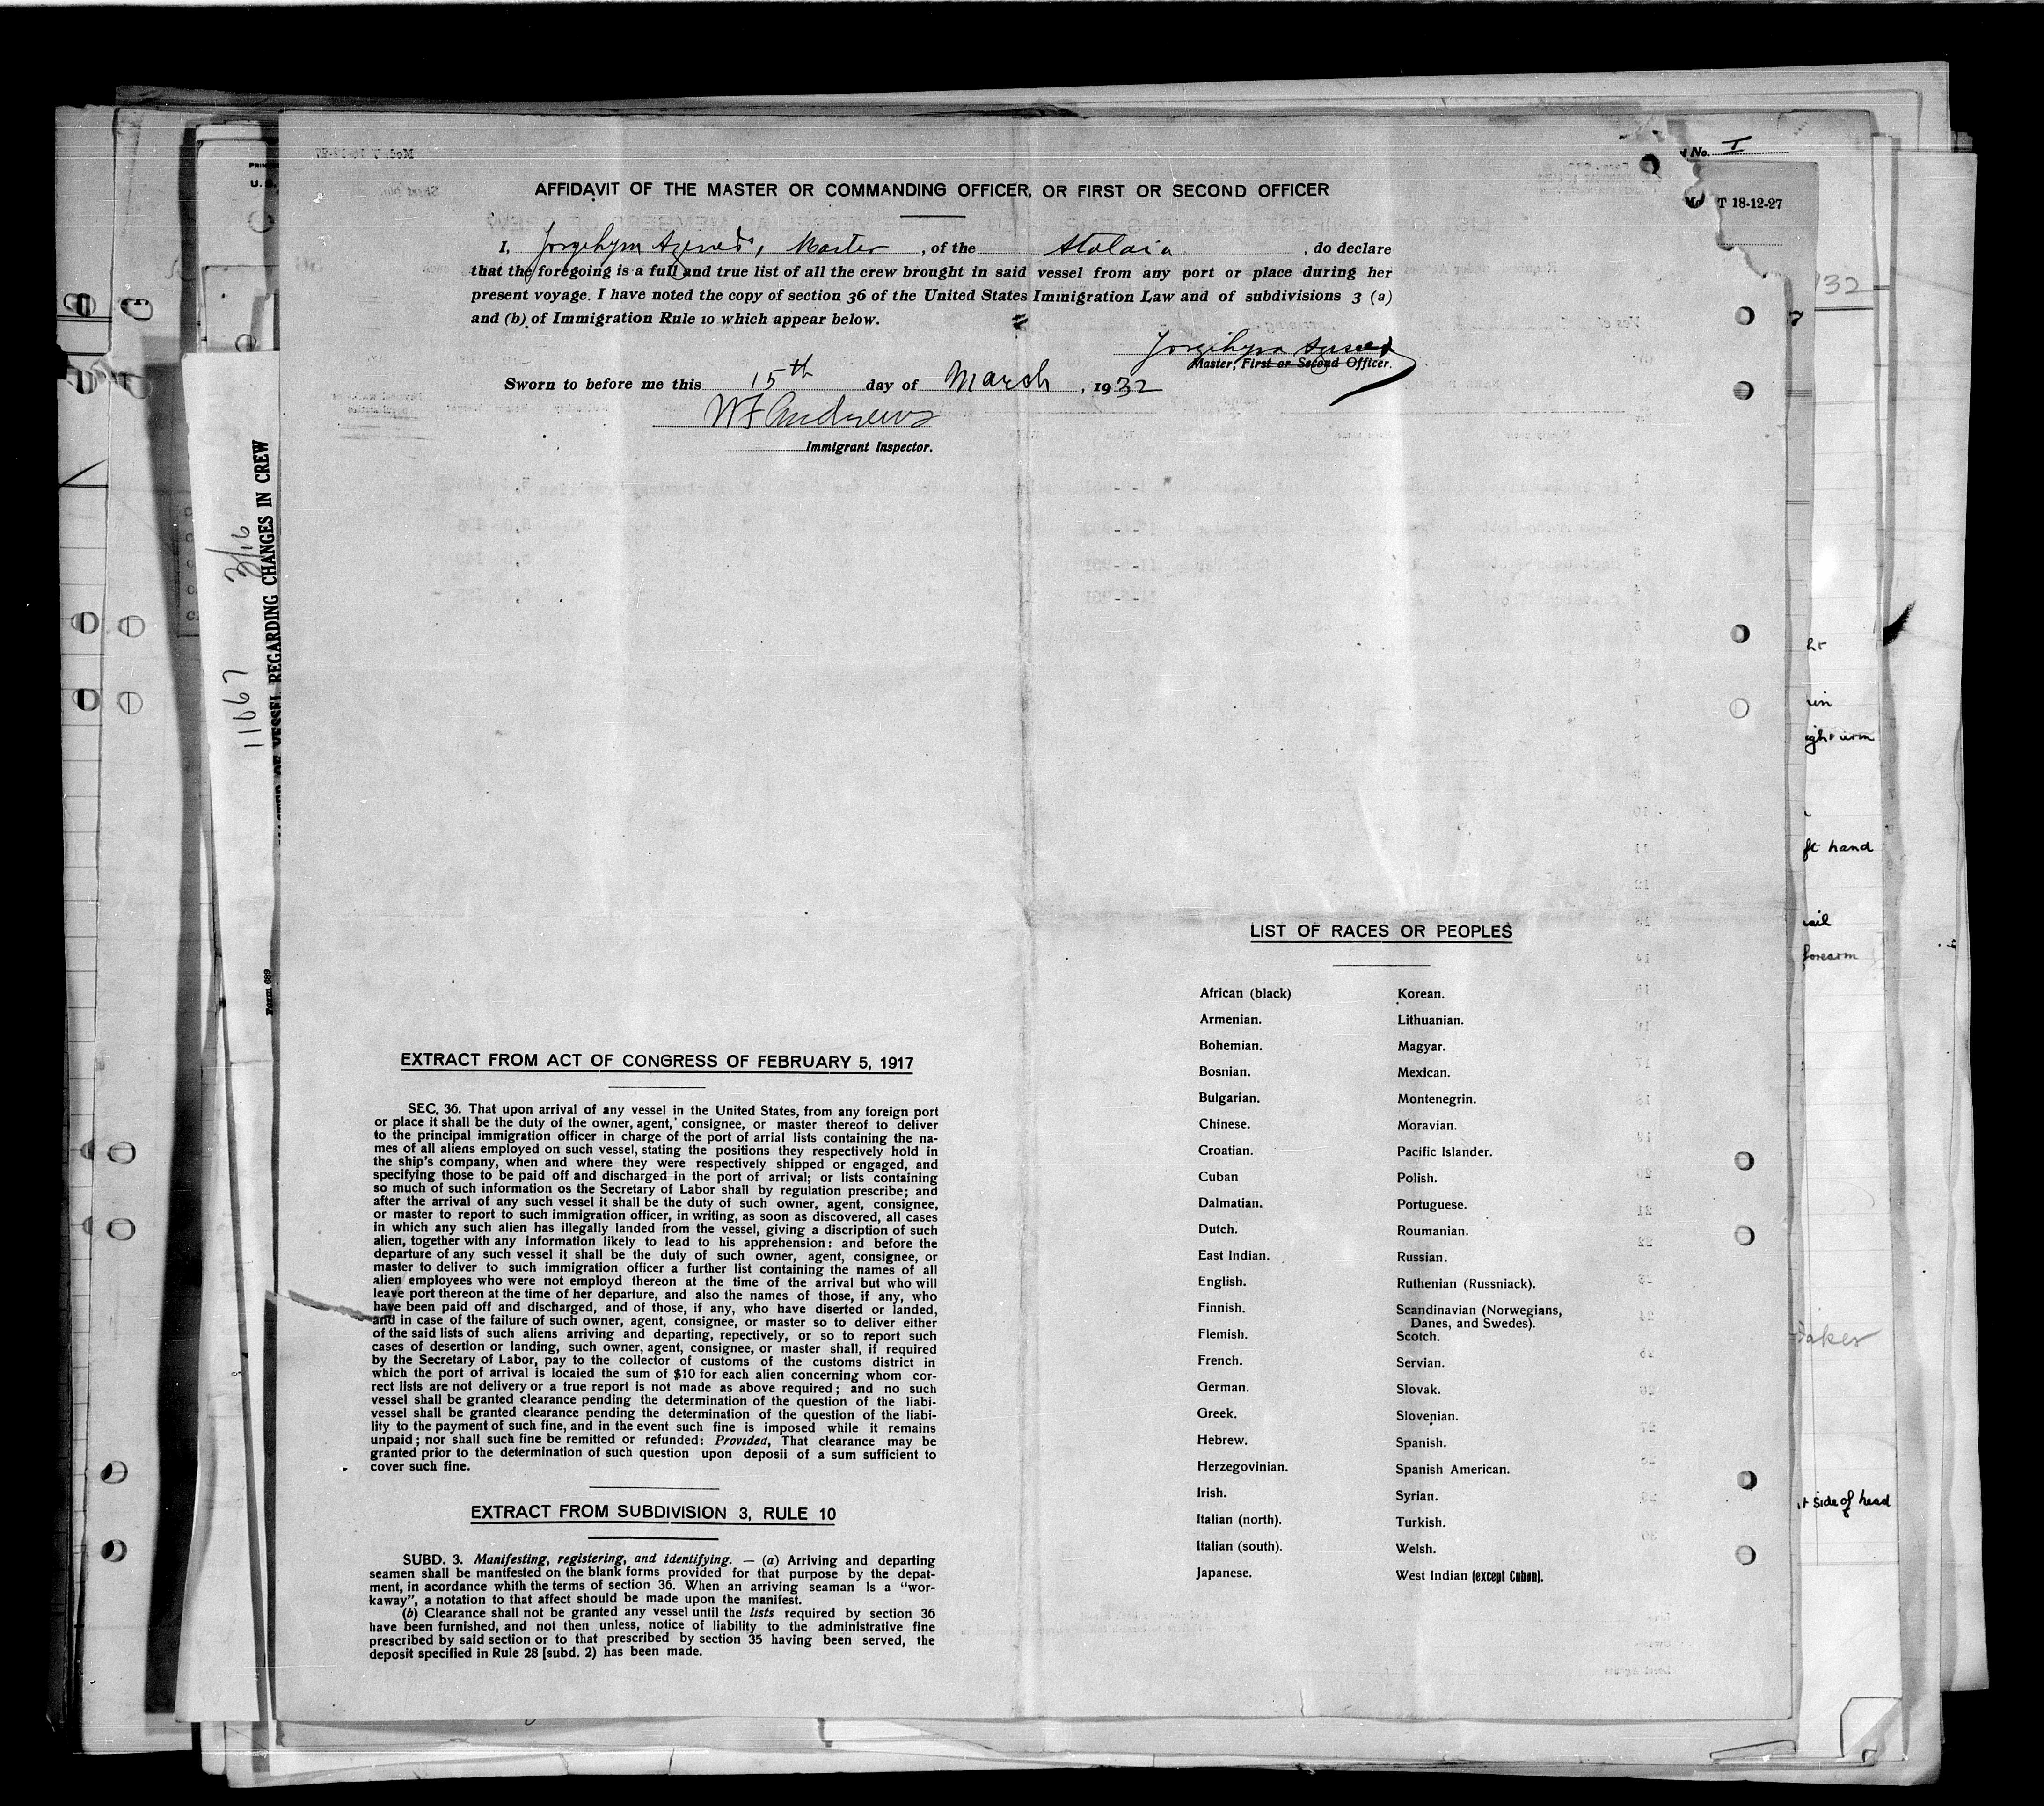 No. I
T 18-12-27
AFFIDAVIT OF THE MASTER OR COMMANDING OFFICER, OR FIRST OR SECOND OFFICER
I, Master, of the Atalaia, do declare
that the foregoing is a full and true list of all the crew brought in said vessel from any port or place during her
present voyage. I have noted the copy of section 36 of the United States Immigration Law and of subdivisions 3 (a)
and (b) of Immigration Rule 10 which appear below.
Master, First or Second Officer.
Sworn to before me this 15th day of March, 1932
W F Andrews
Immigrant Inspector.
PRIN
U. S.
3/16
11667
OF VESSEL REGARDING CHANGES IN CREW
Form 689
EXTRACT FROM ACT OF CONGRESS OF FEBRUARY 5, 1917
SEC. 36. That upon arrival of any vessel in the United States, from any foreign port
or place it shall be the duty of the owner, agent, consignee, or master thereof to deliver
to the principal immigration officer in charge of the port of arrial lists containing the na-
mes of all aliens employed on such vessel, stating the positions they respectively hold in
the ship's company, when and where they were respectively shipped or engaged, and
specifying those to be paid off and discharged in the port of arrival; or lists containing
so much of such information os the Secretary of Labor shall by regulation prescribe; and
after the arrival of any such vessel it shall be the duty of such owner, agent, consignee,
or master to report to such immigration officer, in writing, as soon as discovered, all cases
in which any such alien has illegally landed from the vessel, giving a discription of such
alien, together with any information likely to lead to his apprehension: and before the
departure of any such vessel it shall be the duty of such owner, agent, consignee, or
master to deliver to such immigration officer a further list containing the names of all
alien employees who were not employd thereon at the time of the arrival but who will
leave port thereon at the time of her departure, and also the names of those, if any, who
have been paid off and discharged, and of those, if any, who have diserted or landed,
and in case of the failure of such owner, agent, consignee, or master so to deliver either
of the said lists of such aliens arriving and departing, repectively, or so to report such
cases of desertion or landing, such owner, agent, consignee, or master shall, if required
by the Secretary of Labor, pay to the collector of customs of the customs district in
which the port of arrival is locaied the sum of $10 for each alien concerning whom cor-
rect lists are not delivery or a true report is not made as above required; and no such
vessel shall be granted clearance pending the determination of the question of the liabi-
vessel shall be granted clearance pending the determination of the question of the liabi-
lity to the payment of such fine, and in the event such fine is imposed while it remains
unpaid; nor shall such fine be remitted or refunded: Provided, That clearance may be
granted prior to the determination of such question upon deposii of a sum sufficient to
cover such fine.
EXTRACT FROM SUBDIVISION 3, RULE 10
SUBD. 3. Manifesting, registering, and identifying. — (a) Arriving and departing
seamen shall be mantfested on the blank forms provided for that purpose by the depat-
ment, in acordance whith the terms of section 36. When an arriving seaman Is a "wor-
kaway", a notation to that affect should be made upon the manifest.
(b) Clearance shall not be granted any vessel until the lists required by section 36
have been furnished, and not then unless, notice of liability to the administrative fine
prescribed by said section or to that prescribed by section 35 having been served, the
deposit specified in Rule 28 [subd. 2) has been made.
LIST OF RACES OR PEOPLES
African (black)
Armenian.
Bohemian.
Bosnian.
Bulgarian.
Chinese.
Croatian.
Cuban
Dalmatian.
Dutch.
East Indian.
English.
Finnish.
Flemish.
French.
German.
Greek.
Hebrew.
Herzegovinian.
Irish.
Italian (north).
Italian (south).
Japanese.
Korean.
Lithuanian.
Magyar.
Mexican.
Montenegrin.
Moravian.
Pacific Islander.
Polish.
Portuguese.
Roumanian.
Russian.
Ruthenian (Russniack).
Scandinavian (Norwegians,
Danes, and Swedes).
Scotch.
Servian.
Slovak.
Slovenian.
Spanish.
Spanish American.
Syrian.
Turkish.
Welsh.
West Indian (except Cuban).
ft hand
forearm
side of head